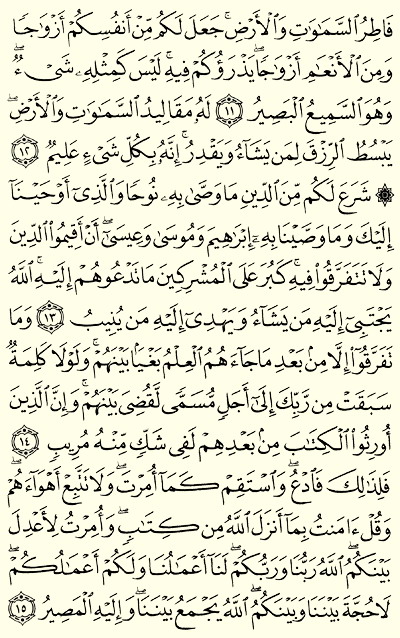 فَاطِرُ السَّمَٰوَٰتِ وَالْأَرْضِ ۚ جَعَلَ لَكُم مِّنْ أَنفُسِكُمْ أَزْوَٰجًا
وَمِنَ الْأَنْعَٰمِ أَزْوَٰجًا ۖ يَذْرَؤُكُمْ فِيهِ ۚ لَيْسَ كَمِثْلِهِۦ شَىْءٌ ۖ
وَهُوَ السَّمِيعُ الْبَصِيرُ ﴿١١﴾ لَهُۥ مَقَالِيدُ السَّمَٰوَٰتِ وَالْأَرْضِ ۖ
يَبْسُطُ الرِّزْقَ لِمَن يَشَآءُ وَيَقْدِرُ ۚ إِنَّهُۥ بِكُلِّ شَىْءٍ عَلِيمٌ ﴿١٢﴾
۞ شَرَعَ لَكُم مِّنَ الدِّينِ مَا وَصَّىٰ بِهِۦ نُوحًا وَالَّذِىٓ أَوْحَيْنَآ
إِلَيْكَ وَمَا وَصَّيْنَا بِهِۦٓ إِبْرَٰهِيمَ وَمُوسَىٰ وَعِيسَىٰٓ ۖ أَنْ أَقِيمُوا۟ الدِّينَ
وَلَا تَتَفَرَّقُوا۟ فِيهِ ۚ كَبُرَ عَلَى الْمُشْرِكِينَ مَا تَدْعُوهُمْ إِلَيْهِ ۚ اللَّهُ
يَجْتَبِىٓ إِلَيْهِ مَن يَشَآءُ وَيَهْدِىٓ إِلَيْهِ مَن يُنِيبُ ﴿١٣﴾ وَمَا
تَفَرَّقُوٓا۟ إِلَّا مِنۢ بَعْدِ مَا جَآءَهُمُ الْعِلْمُ بَغْيًۢا بَيْنَهُمْ ۚ وَلَوْلَا كَلِمَةٌ
سَبَقَتْ مِن رَّبِّكَ إِلَىٰٓ أَجَلٍ مُّسَمًّى لَّقُضِىَ بَيْنَهُمْ ۚ وَإِنَّ الَّذِينَ
أُورِثُوا۟ الْكِتَٰبَ مِنۢ بَعْدِهِمْ لَفِى شَكٍّ مِّنْهُ مُرِيبٍ ﴿١٤﴾
فَلِذَٰلِكَ فَادْعُ ۖ وَاسْتَقِمْ كَمَآ أُمِرْتَ ۖ وَلَا تَتَّبِعْ أَهْوَآءَهُمْ ۖ
وَقُلْ ءَامَنتُ بِمَآ أَنزَلَ اللَّهُ مِن كِتَٰبٍ ۖ وَأُمِرْتُ لِأَعْدِلَ
بَيْنَكُمُ ۖ اللَّهُ رَبُّنَا وَرَبُّكُمْ ۖ لَنَآ أَعْمَٰلُنَا وَلَكُمْ أَعْمَٰلُكُمْ ۖ
لَا حُجَّةَ بَيْنَنَا وَبَيْنَكُمُ ۖ اللَّهُ يَجْمَعُ بَيْنَنَا ۖ وَإِلَيْهِ الْمَصِيرُ ﴿١٥﴾